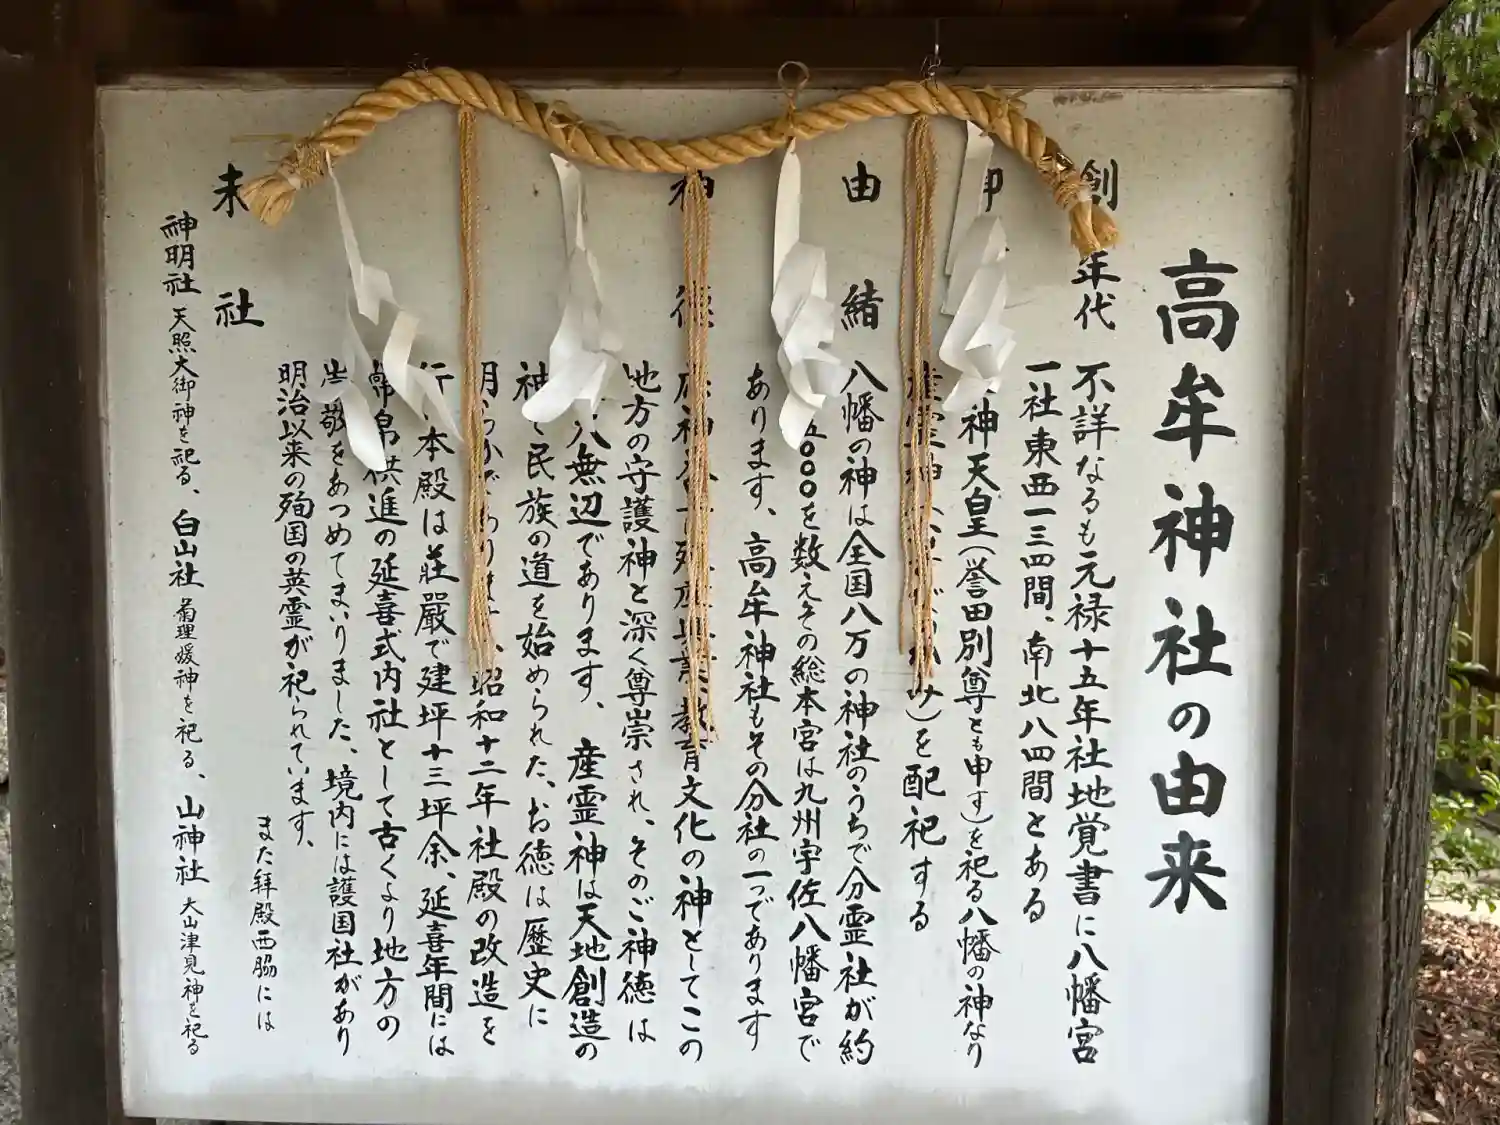 高牟神社の由来
創 年代
不詳なるも元禄十五年社地覚書に八幡宮
一社東西一三四間、南北八四間とある
神天皇(誉田別尊とも申す)を祀る八幡の神なり
産霊神 を配祀する
由緒
八幡の神は全国八万の神社のうちで分霊社が約
五〇〇〇を数えその総本宮は九州宇佐八幡宮で
あります、高牟神社もその分社の一つであります
神徳
教育文化の神としてこの
地方の守護神と深く尊崇され、そのご神徳は
無辺であります、産霊神は天地創造の
神で民族の道を始められた、お徳は歴史に
明らかであります、昭和十二年社殿の改造を
行い本殿は荘厳で建坪十三坪余、延喜年間には
幣帛供進の延喜式内社として古くより地方の
崇敬をあつめてまいりました、境内には護国社があり
明治以来の殉国の英霊が祀られています、
また拝殿西脇には
末社
神明社 天照大御神を祀る、白山社 菊理媛神を祀る、山神社 大山津見神を祀る